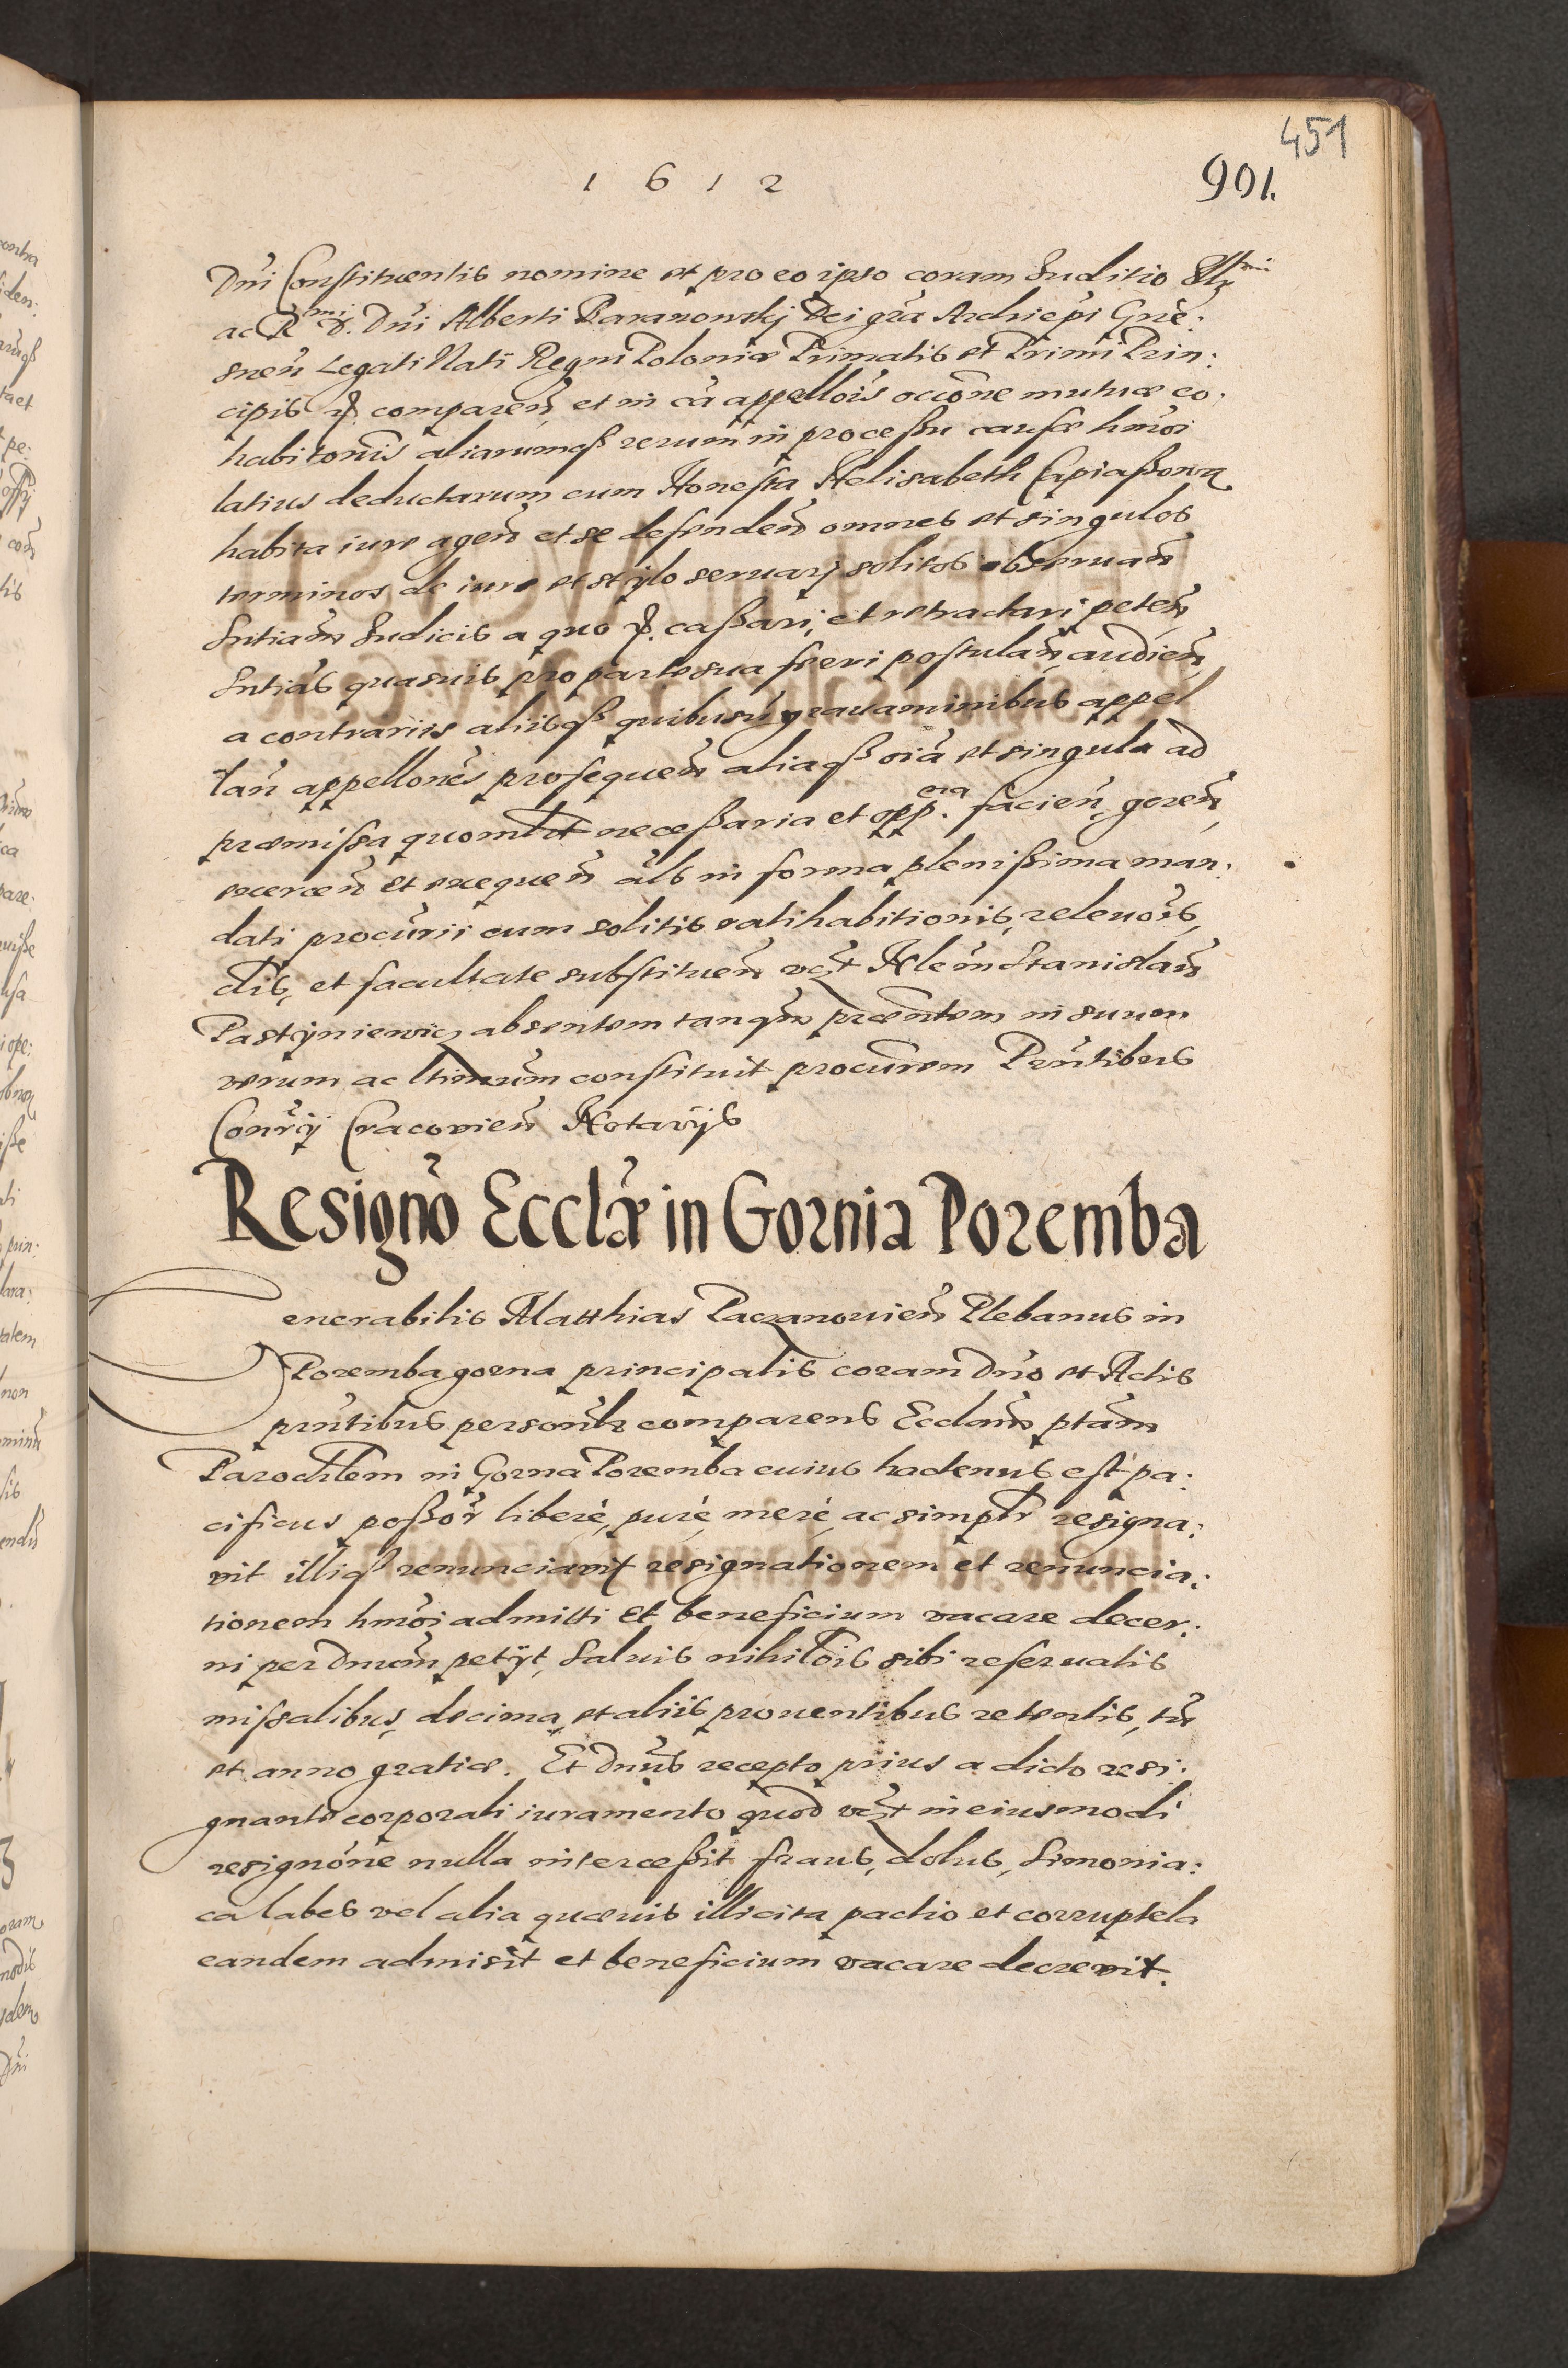 451
1612
901.
Dni Constituentis nomine et pro eo ipso coram Iuditio Illmi
ac Rmi D. Dni Alberti Baranowskj Dei gra Archiepi Gne:
snen Legati Nati Regni Poloniæ Primatis et Primi Prin:
cipis comparen et in ca appellois occione mutuæ co:
habitonis aliarumqß rerum in processu causæ hmoi
latius deductarum cum Honesta Helisabeth Capiaßowa
habita iure agen et se defenden omnes et singulos
terminos de iure et stylo seruarj solitos obseruan
Sntiam Iudicis a quo caßari, et retractari peten
Sntias quasuis pro parte sua ferri postulan, audien
a contrariis aliisqß quibusuis grauaminibus appel
lan appellones prosequen aliaqß oia et singula ad
præmissa quomlt neceßaria et opp.ona facien, geren,
exercen et exequen als in forma plenißima man:
dati procurii cum solitis ratihabitionis, releuois,
clis, et facultate substituen vczt Nlem Stanislaum
Pastyniewicz absentem tanqm præntem in suum
verum ac ltimum constituit procurem Prntibus
Conrij Cracovien Notarijs
Resigno Ecclæ in Gornia Poremba
Venerabilis Matthias Paczanouien Plebanus in
Poremba gorna principalis coram Dno et Actis
prntibus personlr comparens Ecclam ptam
Parochlem in Gorna Poremba cuius hactenus est pa:
cificus poßor liberè, purè, merè, ac simplr resigna:
vit illiqß renunciavit resignationem et renuncia:
tionem hmoi admitti et beneficium vacare decer:
ni per Dnum petijt, Saluis nihilois sibi reseruatis
missalibus, decima, et aliis prouentibus retentis, tum
et anno gratiæ. Et Dnus recepto prius a dicto resi:
gnante corporali iuramento quod vczt in eiusmodi
resignone nulla interceßit fraus, dolus, Simonia:
ca labes vel alia quæuis illicita pactio et corruptela
eandem admisit et beneficium vacare decrevit.